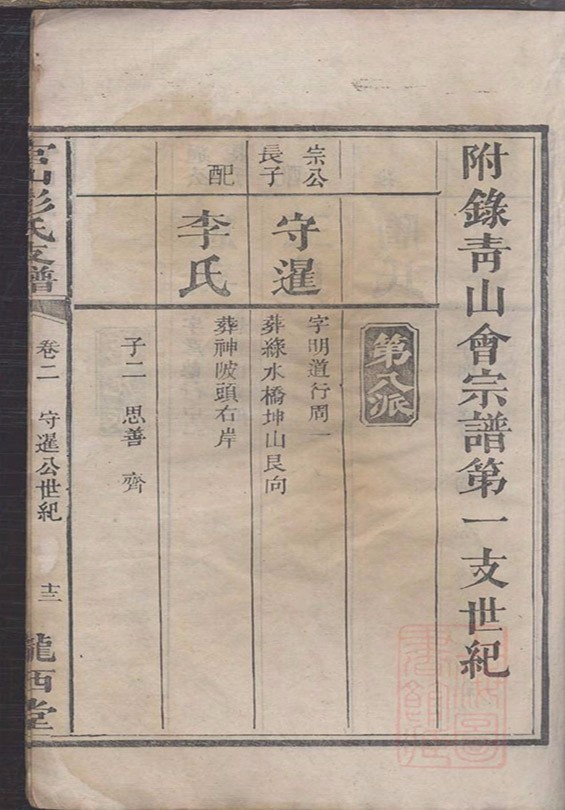 附錄青山會宗譜第一支世紀
第八派
宗公
長子
守暹
字明道行周一
葬綠水橋坤山艮向
配
李氏
葬神陂頭右岸
子二 思善 齊
彭氏支譜
卷二 守暹公世紀 十三
隴西堂